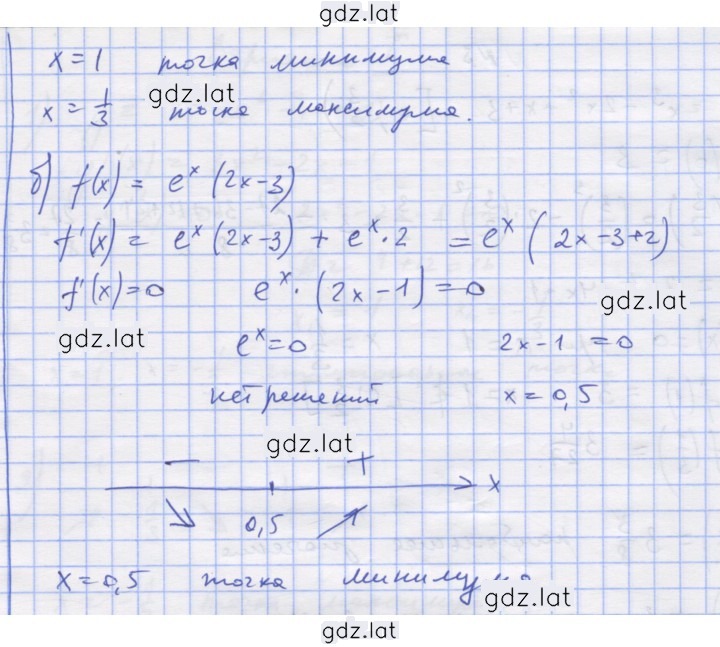 gdz.lat
x = 1 точка минимума
gdz.lat
x = 1/3 точка максимума.
б) f(x) = e^x (2x-3)
f'(x) = e^x (2x-3) + e^x · 2 = e^x (2x-3+2)
f'(x) = 0 e^x · (2x-1) = 0
gdz.lat
gdz.lat
e^x = 0 2x-1 = 0
нет решений x = 0,5
gdz.lat
- +
x
0,5
x = 0,5 точка
gdz.lat
gdz.lat